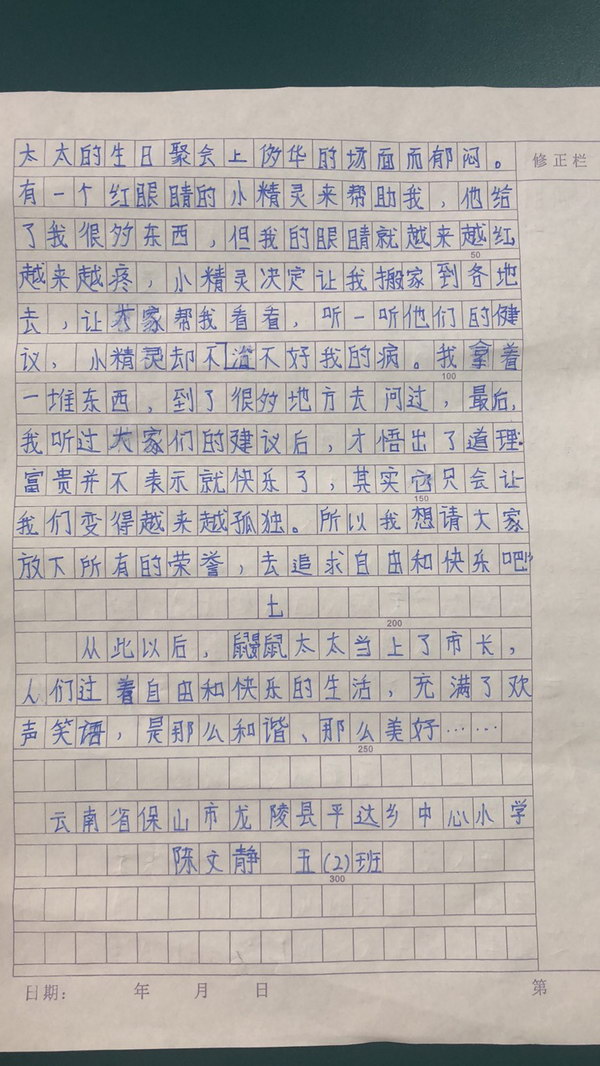 太太的生日聚会上侈华的场面而郁闷。
修正栏
有一个红眼睛的小精灵来帮助我，他给
了我很多东西，但我的眼睛就越来越红
50
越来越疼，小精灵决定让我搬家到各地
去，让大家帮我看看，听一听他们的健
议，小精灵却不治不好我的病。我拿着
100
一堆东西，到了很多地方去问过，最后，
我听过大家们的建议后，才悟出了道理：
富贵并不表示就快乐了，其实它只会让
150
我们变得越来越孤独。所以我想请大家
放下所有的荣誉，去追求自由和快乐吧！
七
200
从此以后，鼹鼠太太当上了市长，
人们过着自由和快乐的生活，充满了欢
声笑语，是那么和谐、那么美好……
250
云南省保山市龙陵县平达乡中心小学
陈文静 五(2)班
300
日期： 年 月 日 第